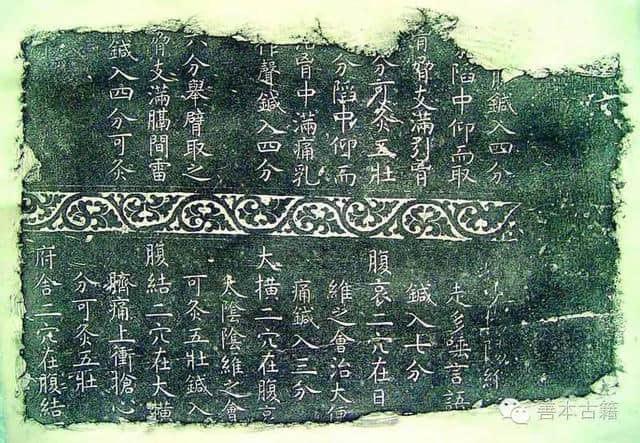 鍼入四分
陷中仰而取
脅支滿引胷
分可灸五壯
分陷中仰而
胷中滿痛乳
聲鍼入四分
六分舉臂取之
脅支滿膈間雷
鍼入四分可灸
走多唾言語
鍼入七分
腹哀二穴在日
維之會治大便
痛鍼入三分
大橫二穴在腹哀
太陰陰維之會
可灸五壯鍼入
腹結二穴在大橫
臍痛上衝搶心
分可灸五壯
府舍二穴在腹結
善本古籍